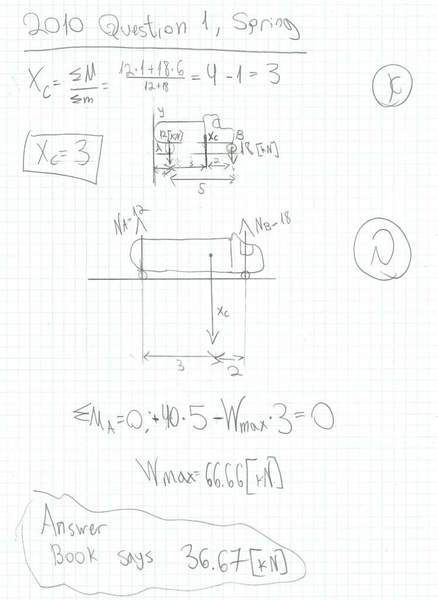 2010 Question 1, Spring
Xc = ΣM/Σm = (12·1+18·6)/(12+18) = 4 - 1 = 3
Xc = 3
א
y
12[kN]
Xc
B
18[kN]
A
3
2
5
ב
NA=12
NB=18
Xc
3
2
ΣMA=0; +40·5 - Wmax·3 = 0
Wmax=66.66[kN]
Answer
Book says 36.67[kN]